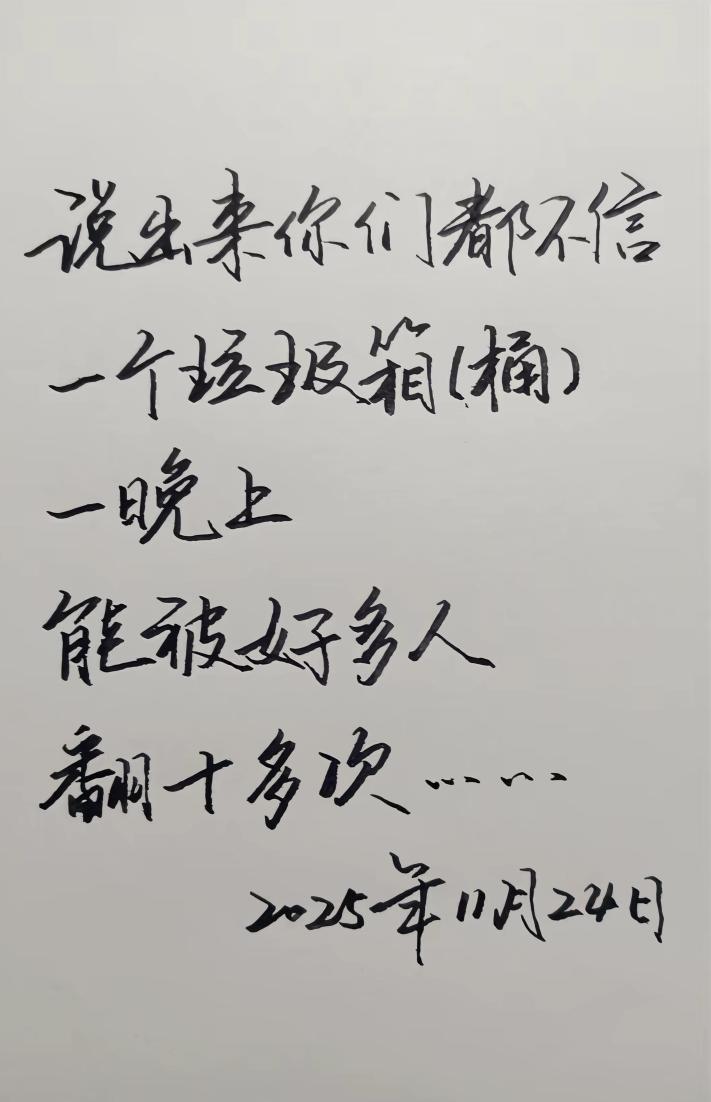 说出来你们都不信
一个垃圾箱(桶)
一晚上
能被好多人
翻十多次……
2025年11月24日